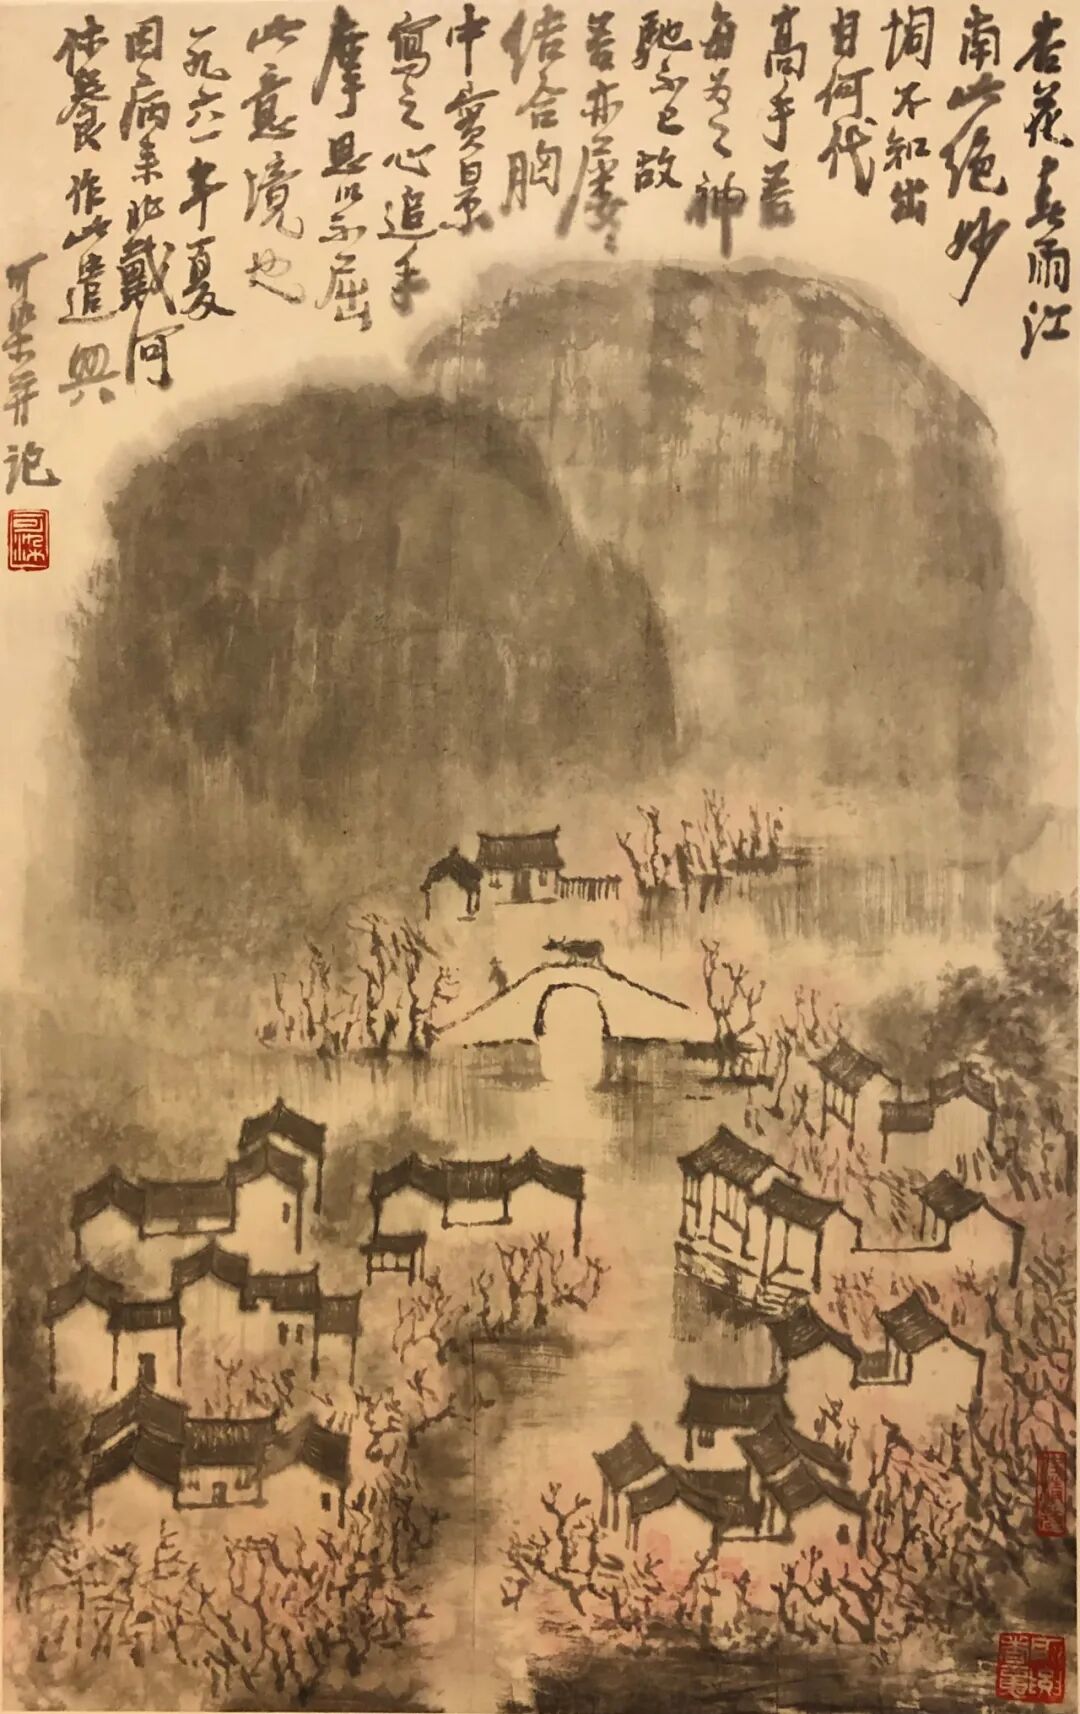 杏花春雨江
南此絶妙
詞不知出
自何代
高手吾
每為之神
馳不已故
吾亦屢〻
结合胸
中實景
寫之心追手
摩思以不屈
此意境也
一九六一年夏
因病来北戴河
休養作此遣興
可染并记
可染